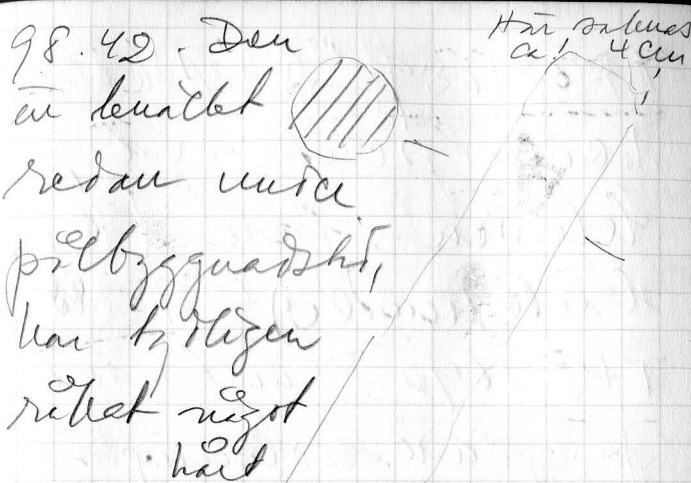 98.42. Den
är
redan under
pålbyggnadsti,
har tydligen
råkat något
hårt
Här saknas
ca 4 cm